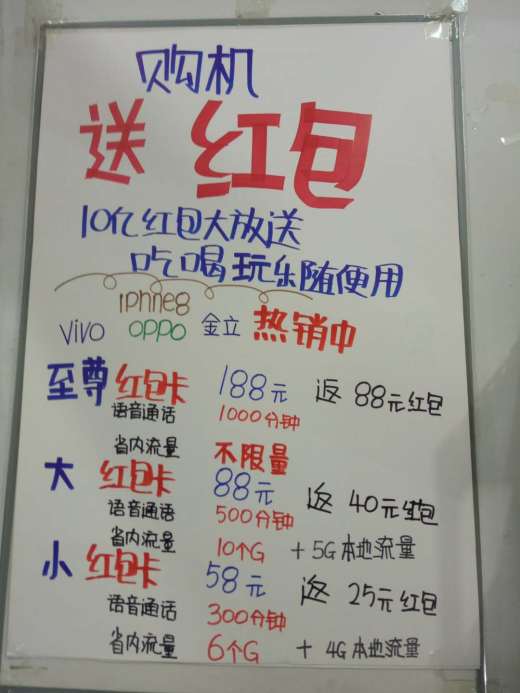 购机
送 红包
10亿红包大放送
吃喝玩乐随便用
iphne8
vivo oppo 金立 热销中
至尊 红包卡 188元 返 88元红包
语音通话 1000分钟
省内流量 不限量
大 红包卡 88元 返 40元红包
语音通话 500分钟
省内流量 10个G + 5G本地流量
小 红包卡 58元 返 25元红包
语音通话 300分钟
省内流量 6个G + 4G本地流量